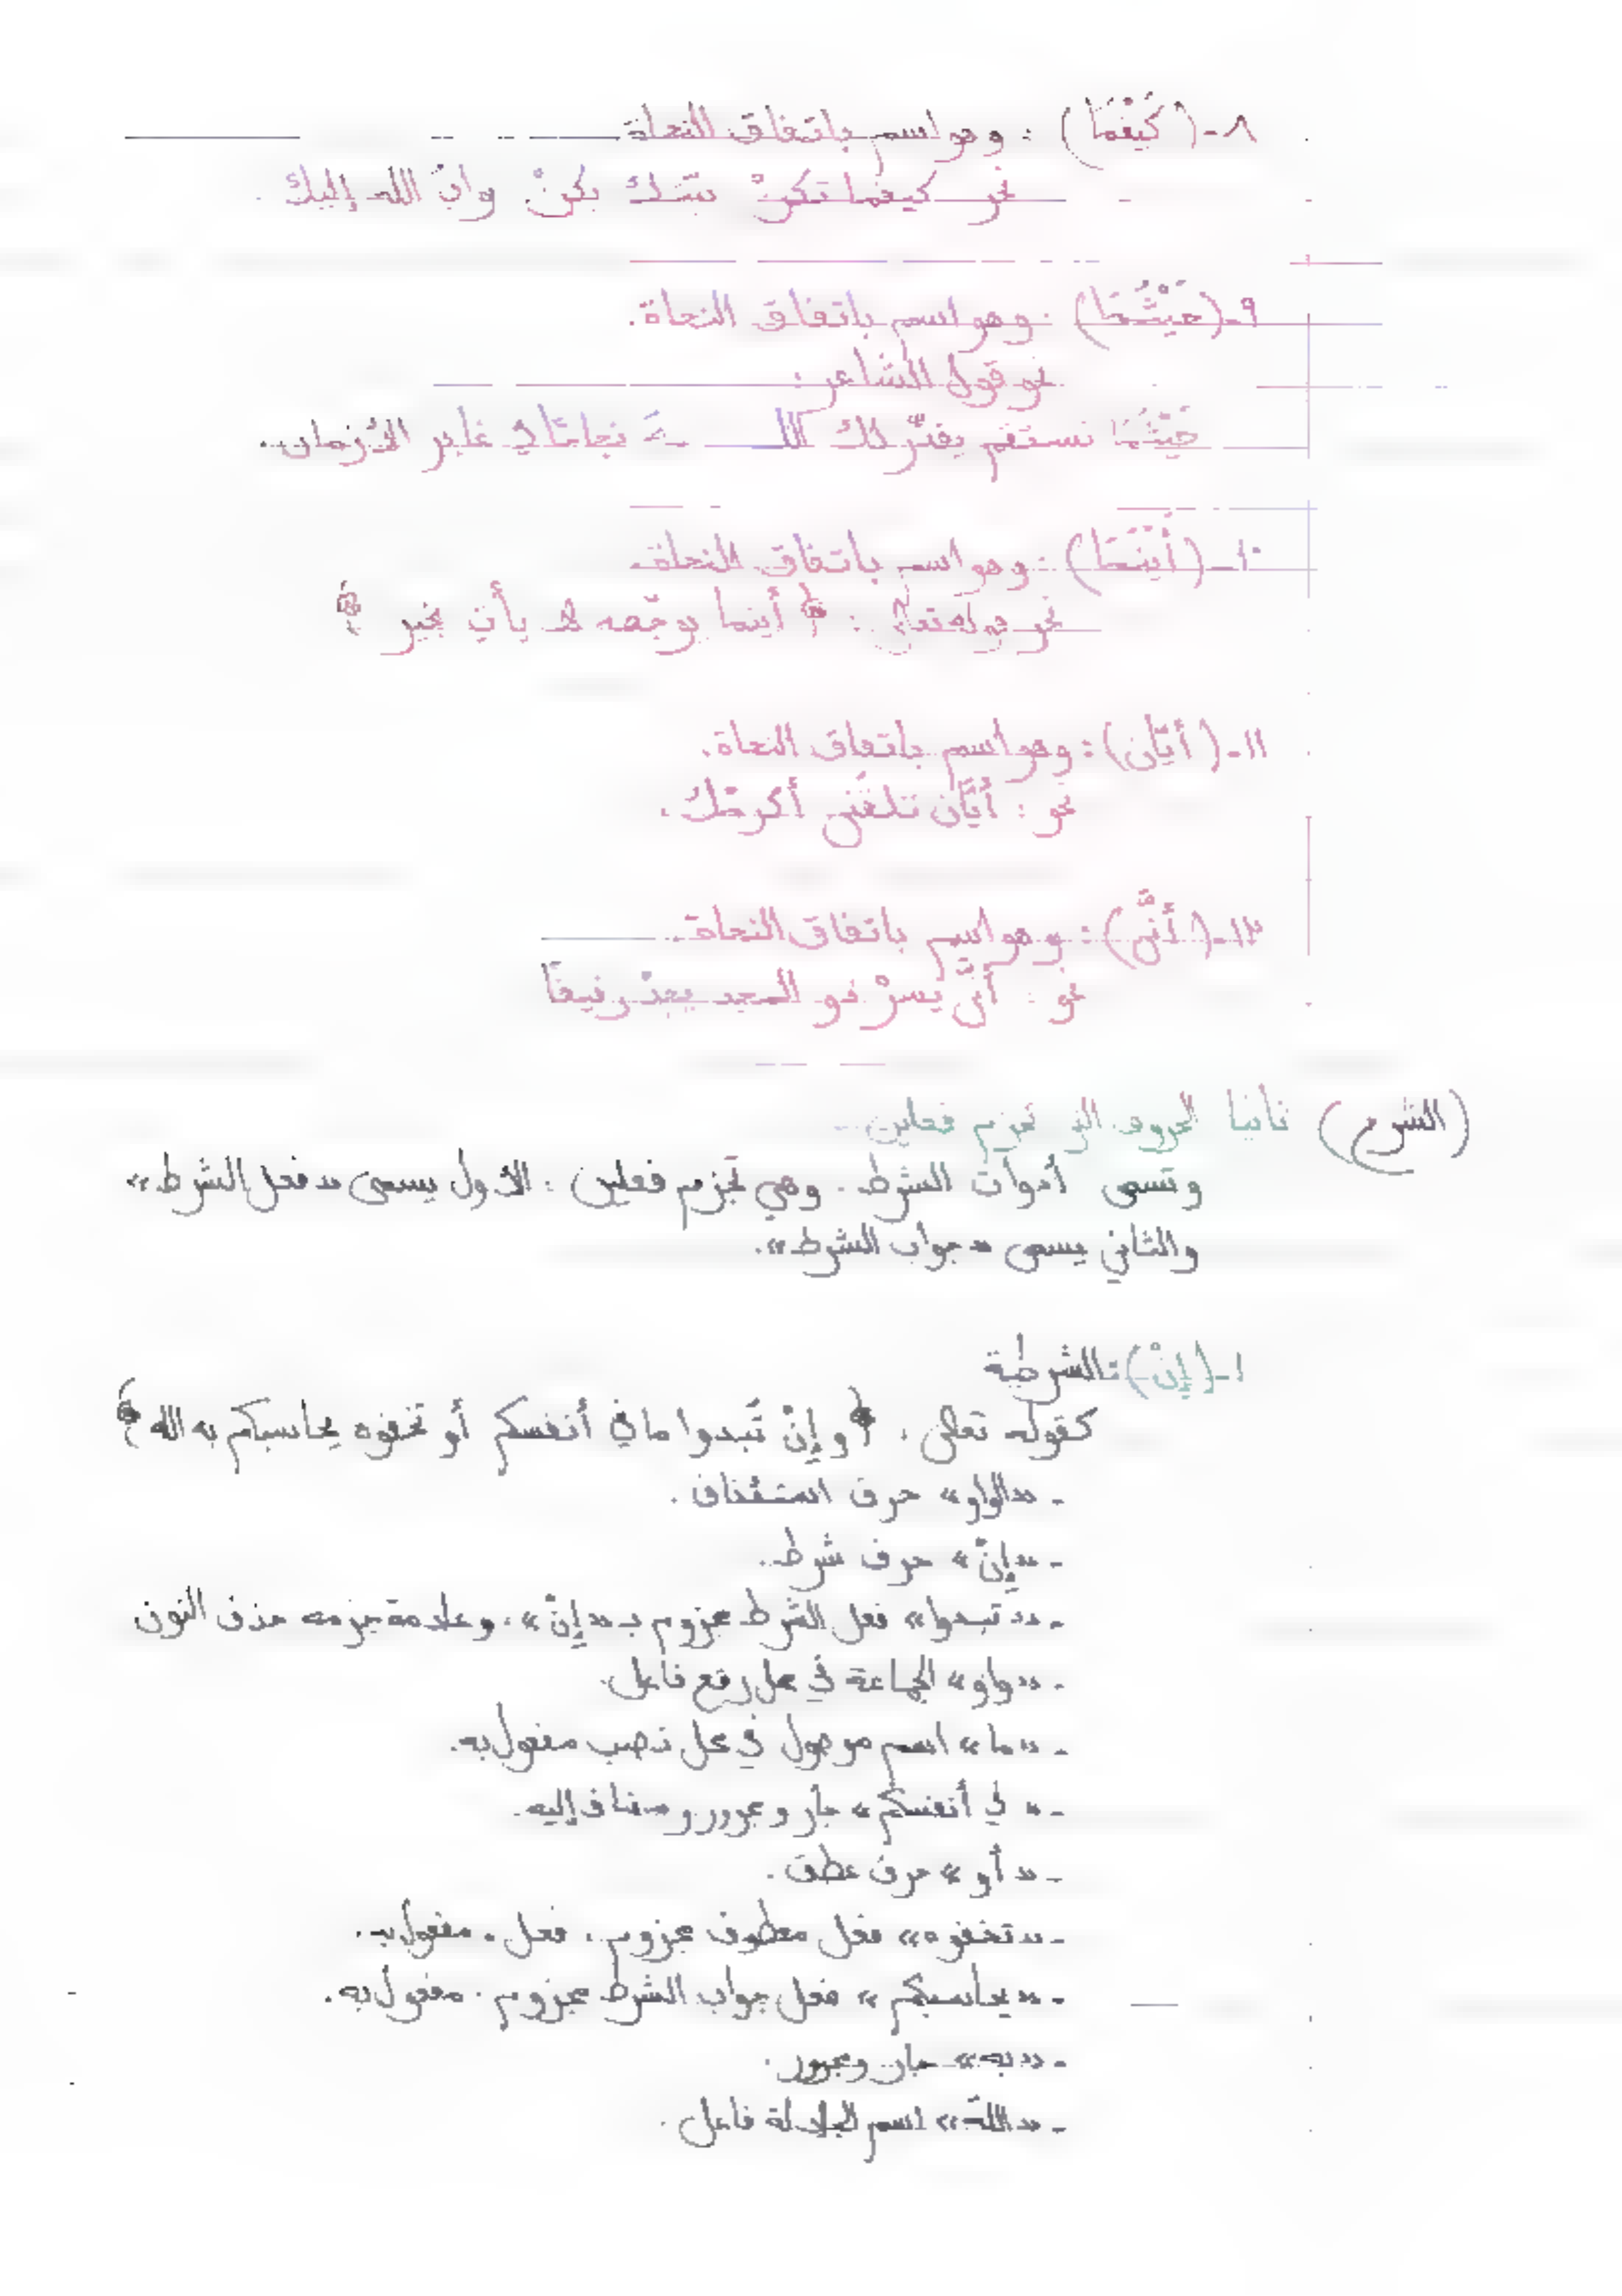 ٨-(كَيْفَمَا) : وهو اسم باتفاق النحاة.
نحو كيفما تكنْ يكنْ الله إليك.
٩-(حَيْثُمَا) : وهو اسم باتفاق النحاة.
نحو قول الشاعر :
حَيْثُمَا تستقم يقدّر لك اللـــه نجاحًا في غابر الأزمان.
١٠-(أَيْنَمَا) : وهو اسم باتفاق النحاة.
نحو قوله تعالى : ﴿ أينما يوجّهه لا يأت بخير ﴾
١١-(أَيَّان) : وهو اسم باتفاق النحاة.
نحو : أَيَّان تلقَني أكرمْك.
١٢-(أَنَّى) : وهو اسم باتفاق النحاة.
نحو : أنَّى يسرْ ذو المجد يجدْ رفيقًا
(الشرح) ثانيا الحروف التي تجزم فعلين.
وتسمى أدوات الشرط. وهي تجزم فعلين : الأول يسمى «فعل الشرط»
والثاني يسمى «جواب الشرط».
١-(إنْ): الشرطية
كقوله تعالى : ﴿وإنْ تُبدوا ما في أنفسكم أو تخفوه يحاسبكم به الله﴾
- «الواو» حرف استئناف.
- «إنْ» حرف شرط.
- «تبدوا» فعل الشرط مجزوم بـ «إنْ». وعلامة جزمه حذف النون
- «واو» الجماعة في محل رفع فاعل.
- «ما» اسم موصول في محل نصب مفعول به.
- «في أنفسكم» جار ومجرور ومضاف إليه.
- «أو» حرف عطف.
- «تخفوه» فعل معطوف مجزوم. فعل. مفعول به.
- «يحاسبكم» فعل جواب الشرط مجزوم. مفعول به.
- «به» جار ومجرور.
- «اللهُ» اسم الجلالة فاعل.